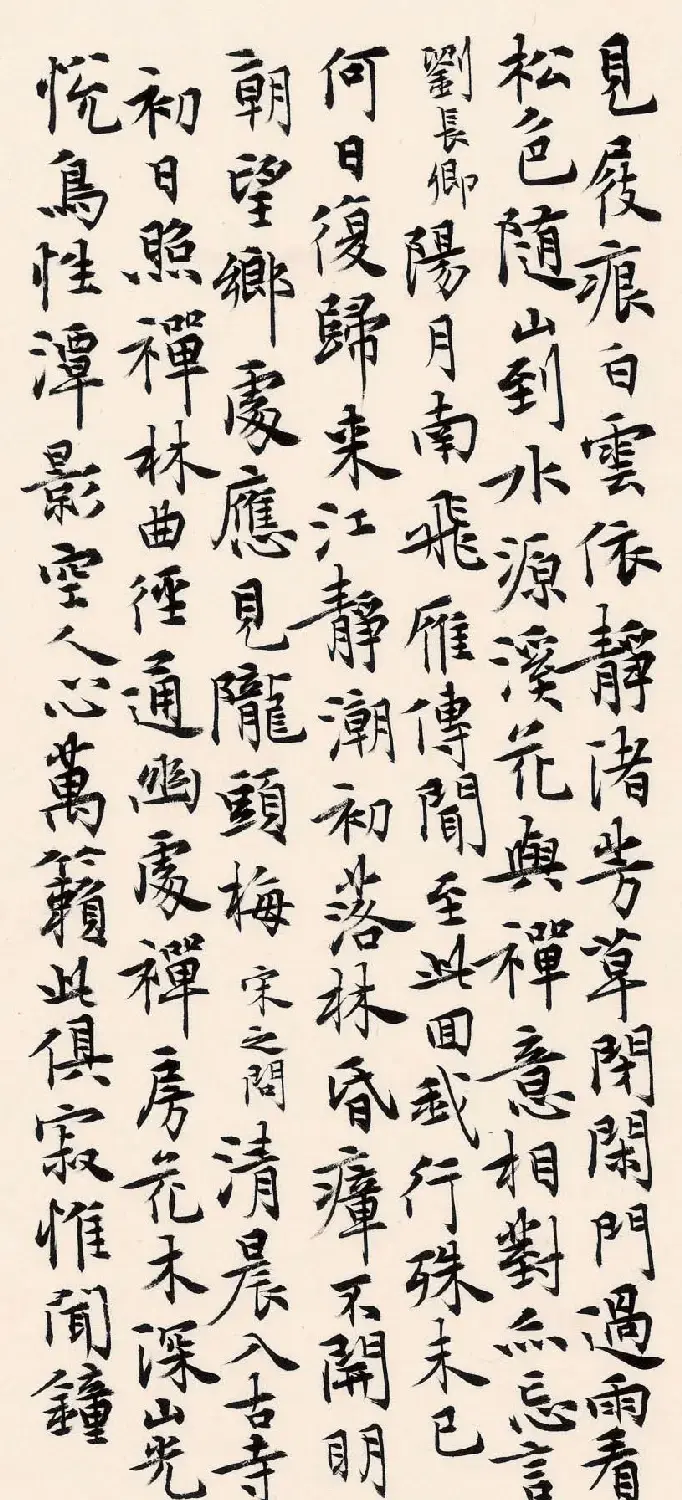 見屐痕白雲依靜渚芳草閉閑門過雨看
松色隨山到水源溪花與禪意相對亦忘言
劉長卿 陽月南飛雁傳聞至此回我行殊未已
何日復歸来江靜潮初落林昏瘴不開明
朝望鄉處應見隴頭梅 宋之問 清晨入古寺
初日照禪林曲徑通幽處禪房花木深山光
悅鳥性潭影空人心萬籟此俱寂惟聞鐘